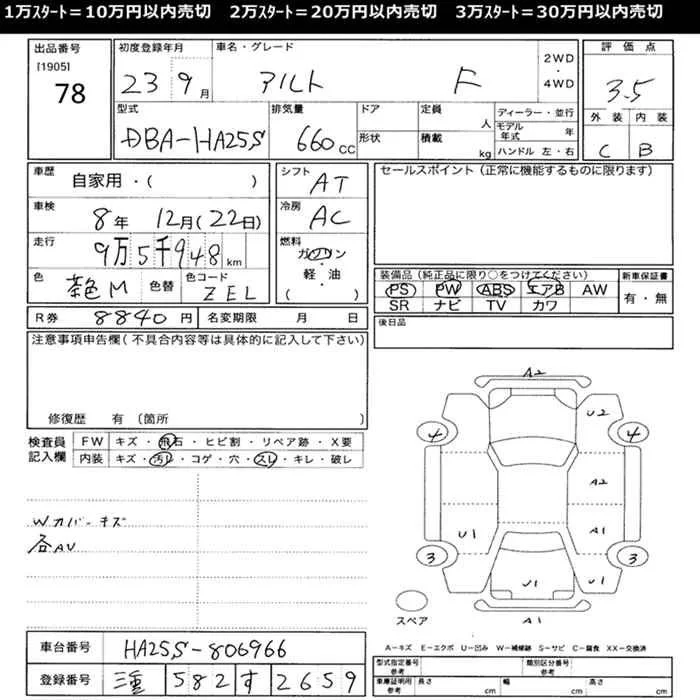 1万ｽﾀｰﾄ＝10万円以内売切　2万ｽﾀｰﾄ＝20万円以内売切　3万ｽﾀｰﾄ＝30万円以内売切
出品番号
[1905]
78
初度登録年月
23 9月
車名・グレード
アルト F
2WD
・
4WD
評価点
3.5
外装 内装
C B
型式
DBA-HA25S
排気量
660 CC
ドア
形状
定員
人
積載
kg
ディーラー・並行
モデル年式 年
ハンドル 左・右
車歴
自家用・( )
車検
8年 12月(22日)
走行
9万5千948km
色
茶色M
色替
色コード
ZEL
シフト
AT
冷房
AC
燃料
ガソリン
・
軽・油
( )
セールスポイント（正常に機能するものに限ります）
装備品（純正品に限り○をつけてください）
PS PW ABS エアB AW
SR ナビ TV カワ
新車保証書
有・無
R券 8840円
名変期限 月 日
後日品
注意事項申告欄（不具合内容等は具体的に記入して下さい）
修復歴 有 〔箇所
検査員記入欄
FW キズ・飛石・ヒビ割・リペア跡・X要
内装 キズ・汚レ・コゲ・穴・スレ・キレ・破レ
Wカバーキズ
各AU
A2
U2
4 4
A2
U1 A1
3 3
U1 U1
A1
スペア
A－キズ E－エクボ U－凹み W－補修跡 S－サビ C－腐食 XX－交換済
車台番号 HA25S-806966
登録番号 三重 582 す 2659
型式指定番号 参考
類別区分番号 参考
車庫証明用 参考
長さ cm 幅 cm 高さ cm